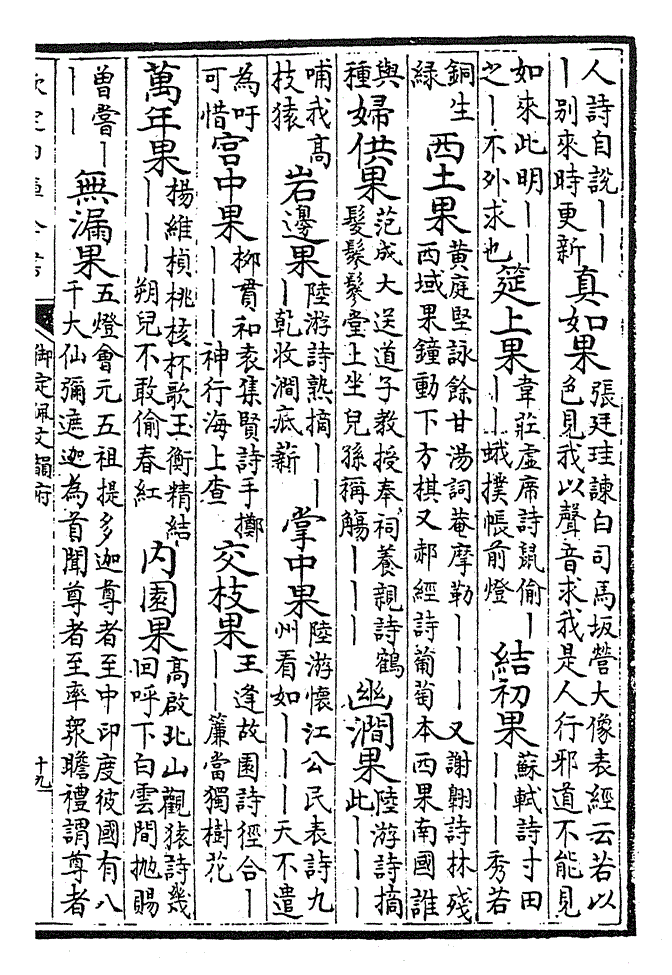 人詩自說——
—別來時更新
真如果
張廷珪諫白司馬坂營大像表經云若以
色見我以聲音求我是人行邪道不能見
如來此明——
之——不外求也
筵上果
韋莊虛席詩鼠偷—
——蛾撲帳前燈
結初果
蘇軾詩寸田
———秀若
銅生
綠
西土果
黃庭堅詠餘甘湯詞菴摩勒———又謝翺詩林殘
西域果鐘動下方棋又郝經詩葡萄本西果南國誰
與
種
婦供果
范成大送道子教授奉祠養親詩鶴
髮鬖鬖堂上坐兒孫稱觴———
幽澗果
陸游詩摘
此———
哺我高
技猿
岩邊果
陸游詩熟摘——
—乾收澗底薪
掌中果
陸游懷江公民表詩九
州看如———天不遣
為吁
可惜
宮中果
柳貫和袁集賢詩手擲
———神行海上查
交枝果
王逢故園詩徑合—
——簾當獨樹花
萬年果
楊維楨桃核杯歌玉衡精結
———朔兒不敢偷春紅
內園果
高啟北山觀猿詩幾
回呼下白雲間抛賜
曾嘗—
——
無漏果
五燈會元五祖提多迦尊者至中印度彼國有八
千大仙彌遮迦為首聞尊者至率衆瞻禮謂尊者
御定佩文韻府
十九